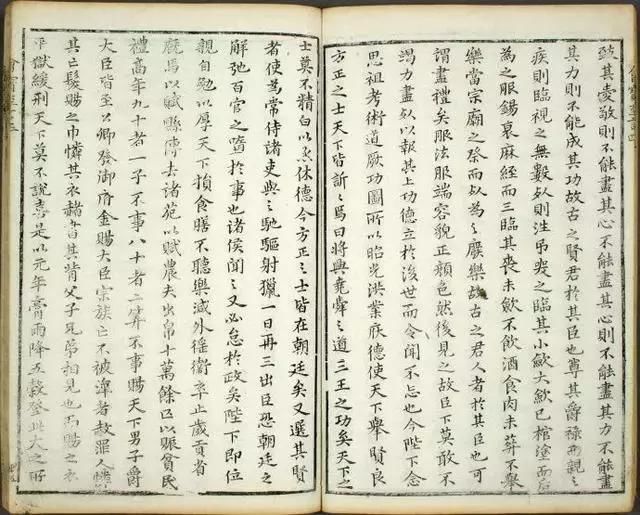 致其愛敬則不能盡其心不能盡其心則不能盡其力不能盡
其力則不能成其功故古之賢君於其臣也尊其爵祿而親之
疾則臨視之無數死則往弔哭之臨其小歛大歛已棺塗而后
為之服錫衰麻絰而三臨其喪未歛不飲酒食肉未葬不舉
樂當宗廟之祭而死為之廢樂故古之君人者於其臣也可
謂盡禮矣服法服端容貌正顏色然後見之故臣下莫敢不
竭力盡死以報其上功德立於後世而令聞不忘也今陛下念
思祖考術道厥功圖所以昭光洪業厎德使天下舉賢良
方正之士天下皆訢訢焉曰將興堯舜之道三王之功矣天下之
士莫不精白以烝休德今方正之士皆在朝廷矣又選其賢
者使為常侍諸吏與之馳驅射獵一日再三出臣恐朝廷之
解弛百官之墮於事也諸侯聞之又必怠於政矣陛下即位
親自勉以厚天下損食膳不聽樂減外徭衛卒止歲貢省
廄馬以賦縣傳去諸苑以賦農夫出帛十萬餘匹以賑貧民
禮高年九十者一子不事八十者二算不事賜天下男子爵
大臣皆至公卿發御府金賜大臣宗族亡不被澤者赦罪人憐
其亡髮賜之巾憐其衣赭書其背父子兄弟相見也而賜之衣
平獄緩刑天下莫不說喜是以元年膏雨降五穀登此天之所